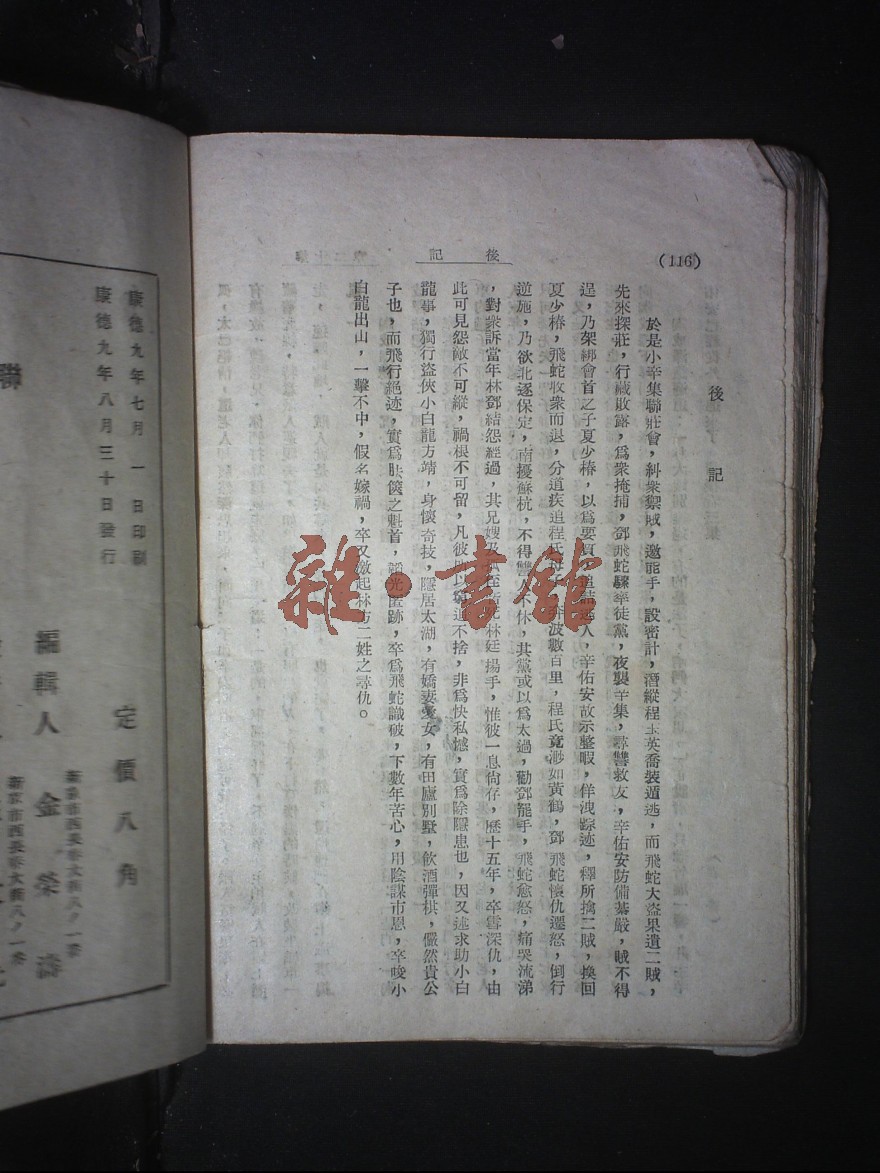 (116)
後記
後記
於是小辛集聯莊會，糾衆禦賊，邀能手，設密計，潛縱程玉英喬裝遁逃，而飛蛇大盜果遣二賊，
先來探莊，行藏敗露，爲衆掩捕，鄧飛蛇驟率徒黨，夜襲辛集，尋讐救友，辛佑安防備綦嚴，賊不得
逞，乃架綁會首之子夏少椿，以爲要質，人，辛佑安故示整暇，佯洩踪迹，釋所擒二賊，換回
夏少椿，飛蛇收衆而退，分道疾追程氏母子，奔波數百里，程氏竟渺如黃鶴，鄧飛蛇懷仇遷怒，倒行
逆施，乃欲北逐保定，南擾蘇杭，不得雙人不休，其黨或以爲太過，勸鄧罷手，飛蛇愈怒，痛哭流涕
，對衆訴當年林鄧結怨經過，其兄嫂及林廷揚手，惟彼一息尙存，歷十五年，卒雪深仇，由
此可見怨敵不可縱，禍根不可留，凡彼所以窮追不捨，非爲快私憾，實爲除隱患也，因又述求助小白
龍事，獨行盜俠小白龍方靖，身懷奇技，隱居太湖，有嬌妻愛女，有田廬別墅，飲酒彈棋，儼然貴公
子也，而飛行絕迹，實爲胠篋之魁首，韜光匿跡，卒爲飛蛇識破，下數年苦心，用陰謀市恩，卒唆小
白龍出山，一擊不中，假名嫁禍，卒又激起林方二姓之尋仇。
雜·書館
康德九年七月一日印刷
康德九年八月三十日發行
定價八角
新京市西長春大街八ノ一番
編輯人 金榮濤
新京市西長春大街八ノ一番
聯